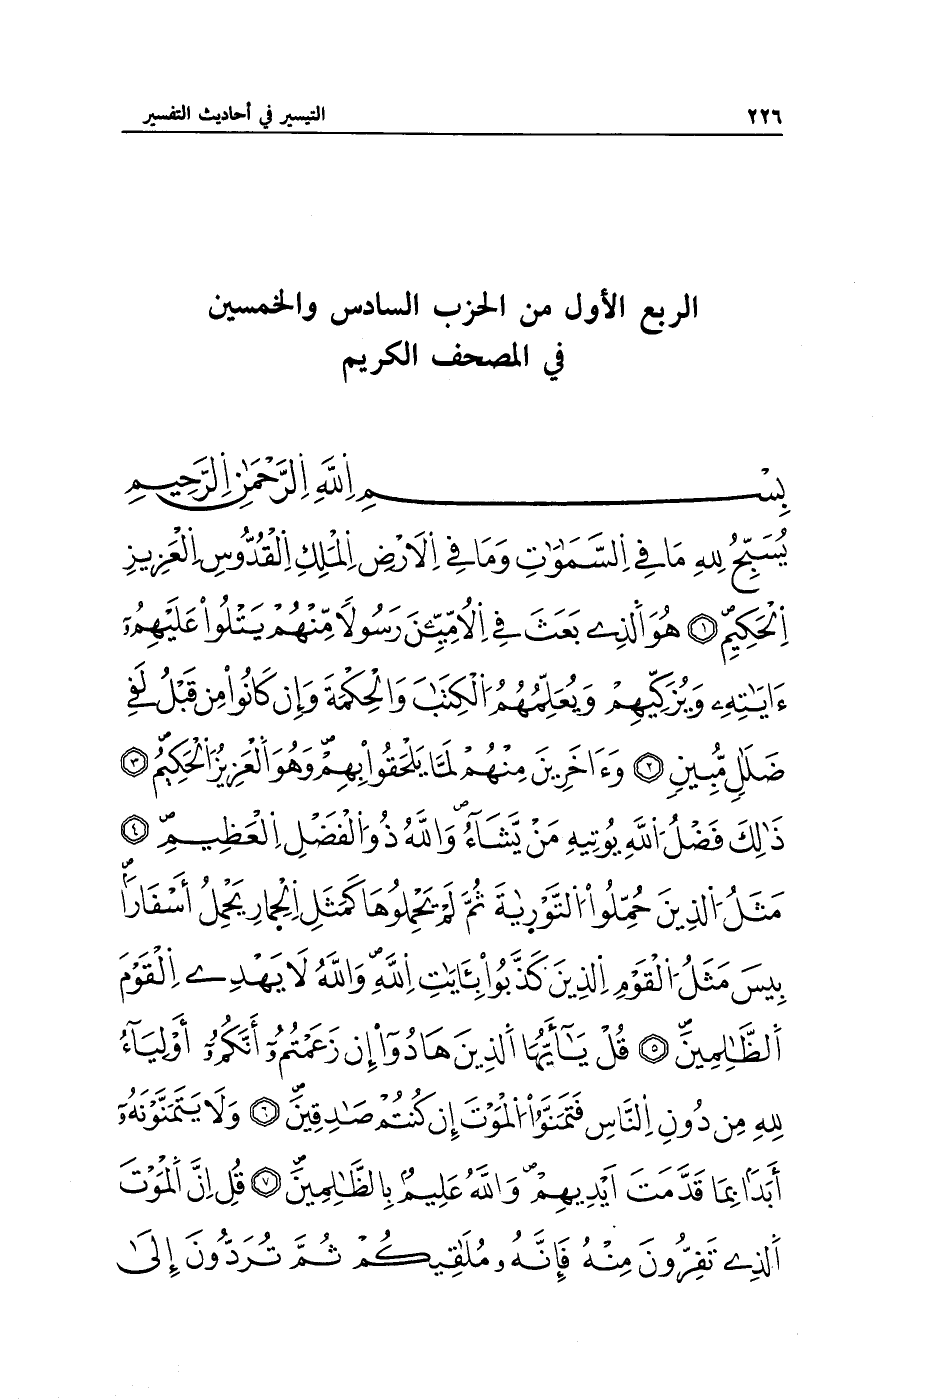 ٢٢٦ التيسير في أحاديث التفسير
الربع الأول من الحزب السادس والخمسين
في المصحف الكريم
بِسْمِ اِ۬للَّهِ اِ۬لرَّحْمَٰنِ اِ۬لرَّحِيمِ
يُسَبِّحُ لِلهِ مَا فِے اِ۬لسَّمَٰوَٰتِ وَمَا فِے اِ۬لَارْضِ اِ۬لْمَلِكِ اِ۬لْقُدُّوسِ اِ۬لْعَزِيزِ
اِ۬لْحَكِيمِۖ ١ هُوَ اَ۬لذِے بَعَثَ فِے اِ۬لُامِّيِّـۧنَ رَسُولاٗ مِّنْهُمْ يَتْلُواْ عَلَيْهِمُۥٓ
ءَايَٰتِهِۦ وَيُزَكِّيهِمْ وَيُعَلِّمُهُمُ اُ۬لْكِتَٰبَ وَالْحِكْمَةَ وَإِن كَانُواْ مِن قَبْلُ لَفِے
ضَلَٰلٖ مُّبِينٖ ٢ وَءَاخَرِينَ مِنْهُمْ لَمَّا يَلْحَقُواْ بِهِمْۖ وَهُوَ اَ۬لْعَزِيزُ اُ۬لْحَكِيمُۖ ٣
ذَٰلِكَ فَضْلُ اُ۬للَّهِ يُوتِيهِ مَنْ يَّشَآءُۖ وَاللَّهُ ذُو اُ۬لْفَضْلِ اِ۬لْعَظِيمِۖ ٤
مَثَلُ اُ۬لذِينَ حُمِّلُواْ اُ۬لتَّوْر۪يٰةَ ثُمَّ لَمْ يَحْمِلُوهَا كَمَثَلِ اِ۬لْحِمارِ يَحْمِلُ أَسْفَاراَۢۖ
بِيسَ مَثَلُ اُ۬لْقَوْمِ اِ۬لذِينَ كَذَّبُواْ بِـَٔايَٰتِ اِ۬للَّهِۖ وَاللَّهُ لَا يَهْدِے اِ۬لْقَوْمَ
اَ۬لظَّٰلِمِينَۖ ٥ قُلْ يَٰٓأَيُّهَا اَ۬لذِينَ هَادُوٓاْ إِن زَعَمْتُمُۥٓ أَنَّكُمُۥٓ أَوْلِيَآءُ
لِلهِ مِن دُونِ اِ۬لنَّاسِ فَتَمَنَّوُاْ اُ۬لْمَوْتَ إِن كُنتُمْ صَٰدِقِينَۖ ٦ وَلَا يَتَمَنَّوْنَهُۥٓ
أَبَداَۢ بِمَا قَدَّمَتَ اَيْدِيهِمْۖ وَاللَّهُ عَلِيمُۢ بِالظَّٰلِمِينَۖ ٧ قُلِ اِنَّ اَ۬لْمَوْتَ
اَ۬لذِے تَفِرُّونَ مِنْهُ فَإِنَّهُۥ مُلَٰقِيكُمْ ثُمَّ تُرَدُّونَ إِلَىٰ